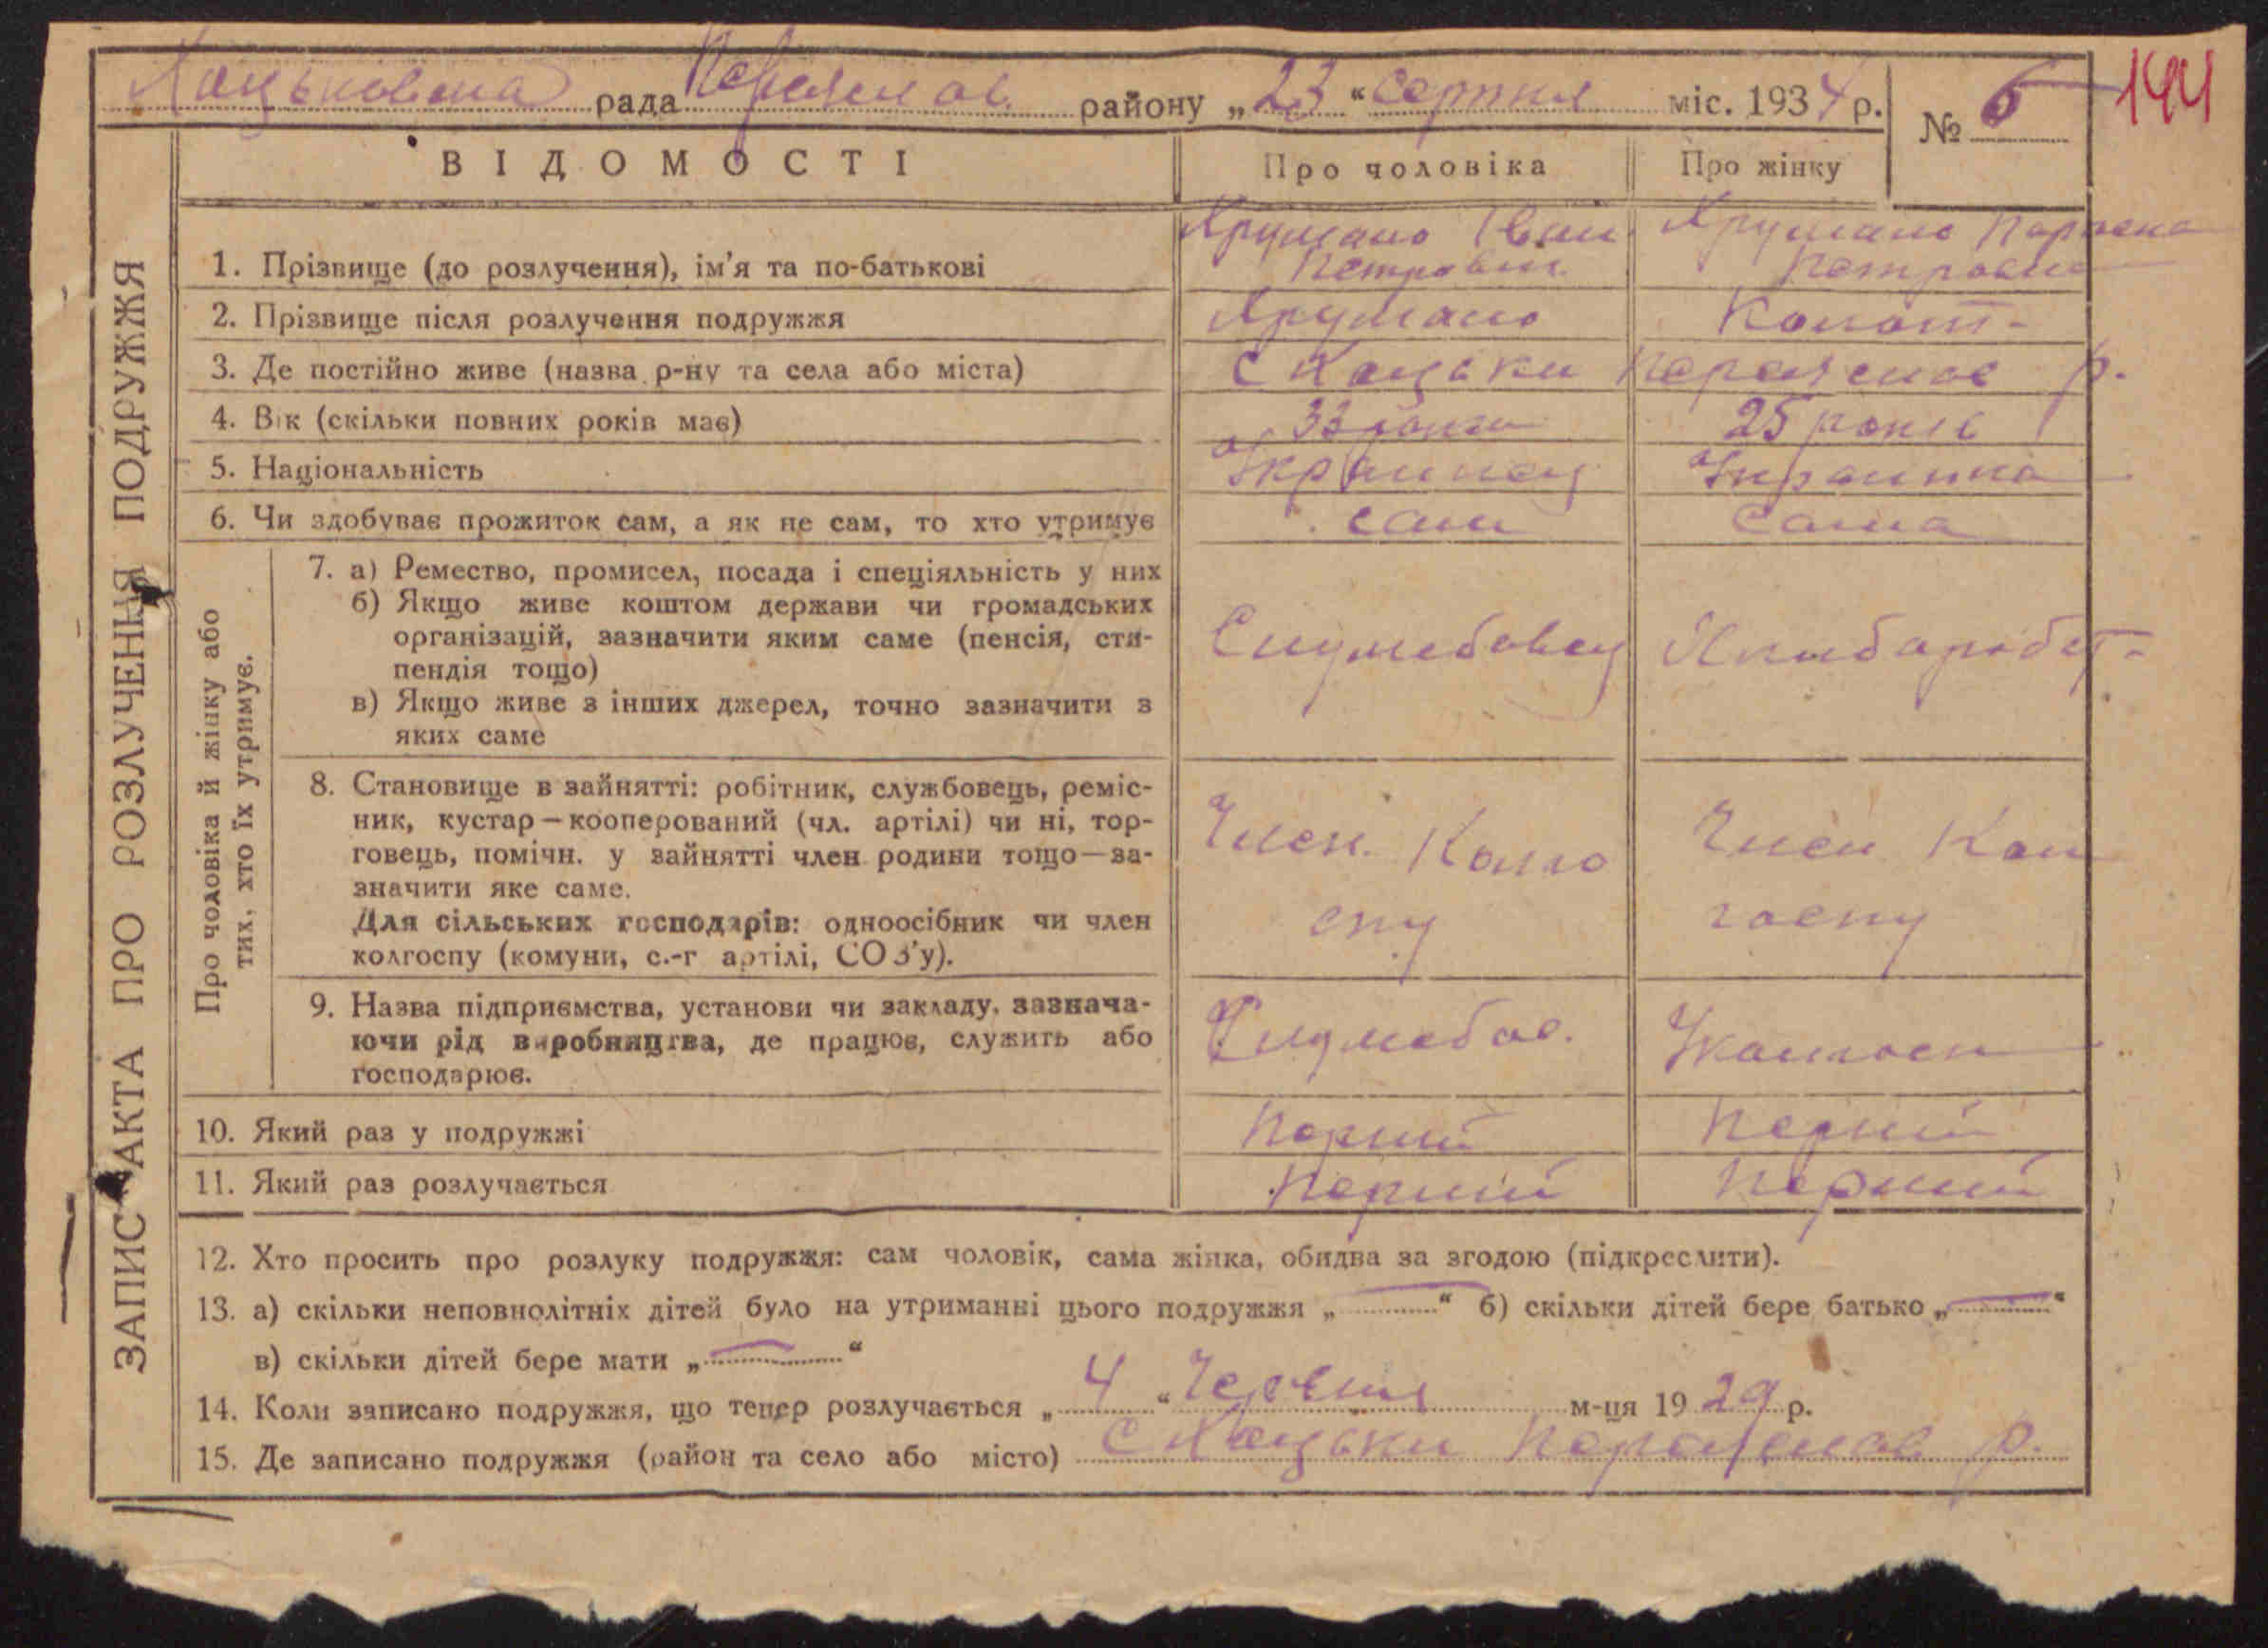 рада Переяслав. району „23“ серпня міс. 1934 р.
№ 6
144
ВІДОМОСТІ
Про чоловіка
Про жінку
ЗАПИС АКТА ПРО РОЗЛУЧЕННЯ ПОДРУЖЖЯ
1. Прізвище (до розлучення), ім’я та по-батькові Іван Петрович
Петровна
2. Прізвище після розлучення подружжя
3. Де постійно живе (назва р-ну та села або міста) с Хоцьки Переяслав р.
4. Вік (скільки повних років має) 33 роки 25 років
5. Національність Українец Українка
6. Чи здобуває прожиток сам, а як не сам, то хто утримує сам сама
Про чоловіка й жінку або
тих, хто їх утримує.
7. а) Ремество, промисел, посада і спеціяльність у них
б) Якщо живе коштом держави чи громадських
організацій, зазначити яким саме (пенсія, сти-
пендія тощо)
в) Якщо живе з інших джерел, точно зазначити з
яких саме
Служебовец Хлибаробст-
8. Становище в зайнятті: робітник, службовець, реміс-
ник, кустар — кооперований (чл. артілі) чи ні, тор-
говець, помічн. у зайнятті член родини тощо—за-
значити яке саме.
Для сільських господарів: одноосібник чи член
колгоспу (комуни, с.-г артілі, СОЗ’у).
Член. Колго
спу
Член Кол
госпу
9. Назва підприємства, установи чи закладу, зазнача-
ючи рід виробництва, де працює, служить або
господарює.
Служебов. Уколгосп
10. Який раз у подружжі Перший Перший
11. Який раз розлучається Перший Перший
12. Хто просить про розлуку подружжя: сам чоловік, сама жінка, обидва за згодою (підкреслити).
13. а) скільки неповнолітніх дітей було на утриманні цього подружжя „—“ б) скільки дітей бере батько „—“
в) скільки дітей бере мати „—“
14. Коли записано подружжя, що тепер розлучається „4“ Червня м-ця 1929 р.
15. Де записано подружжя (район та село або місто) с Хоцьки Переяслав р.